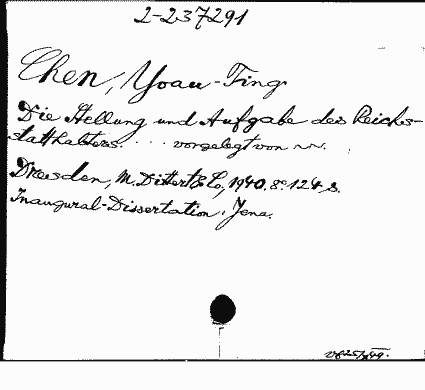 2-237291
Chen, Yoau-Ting
Die Stellung und Aufgabe des Reichs-
statthalters. ... vorgelegt von
Dresden, M. Dittert & Co., 1940. 8° 124 S.
Inaugural-Dissertation. Jena.